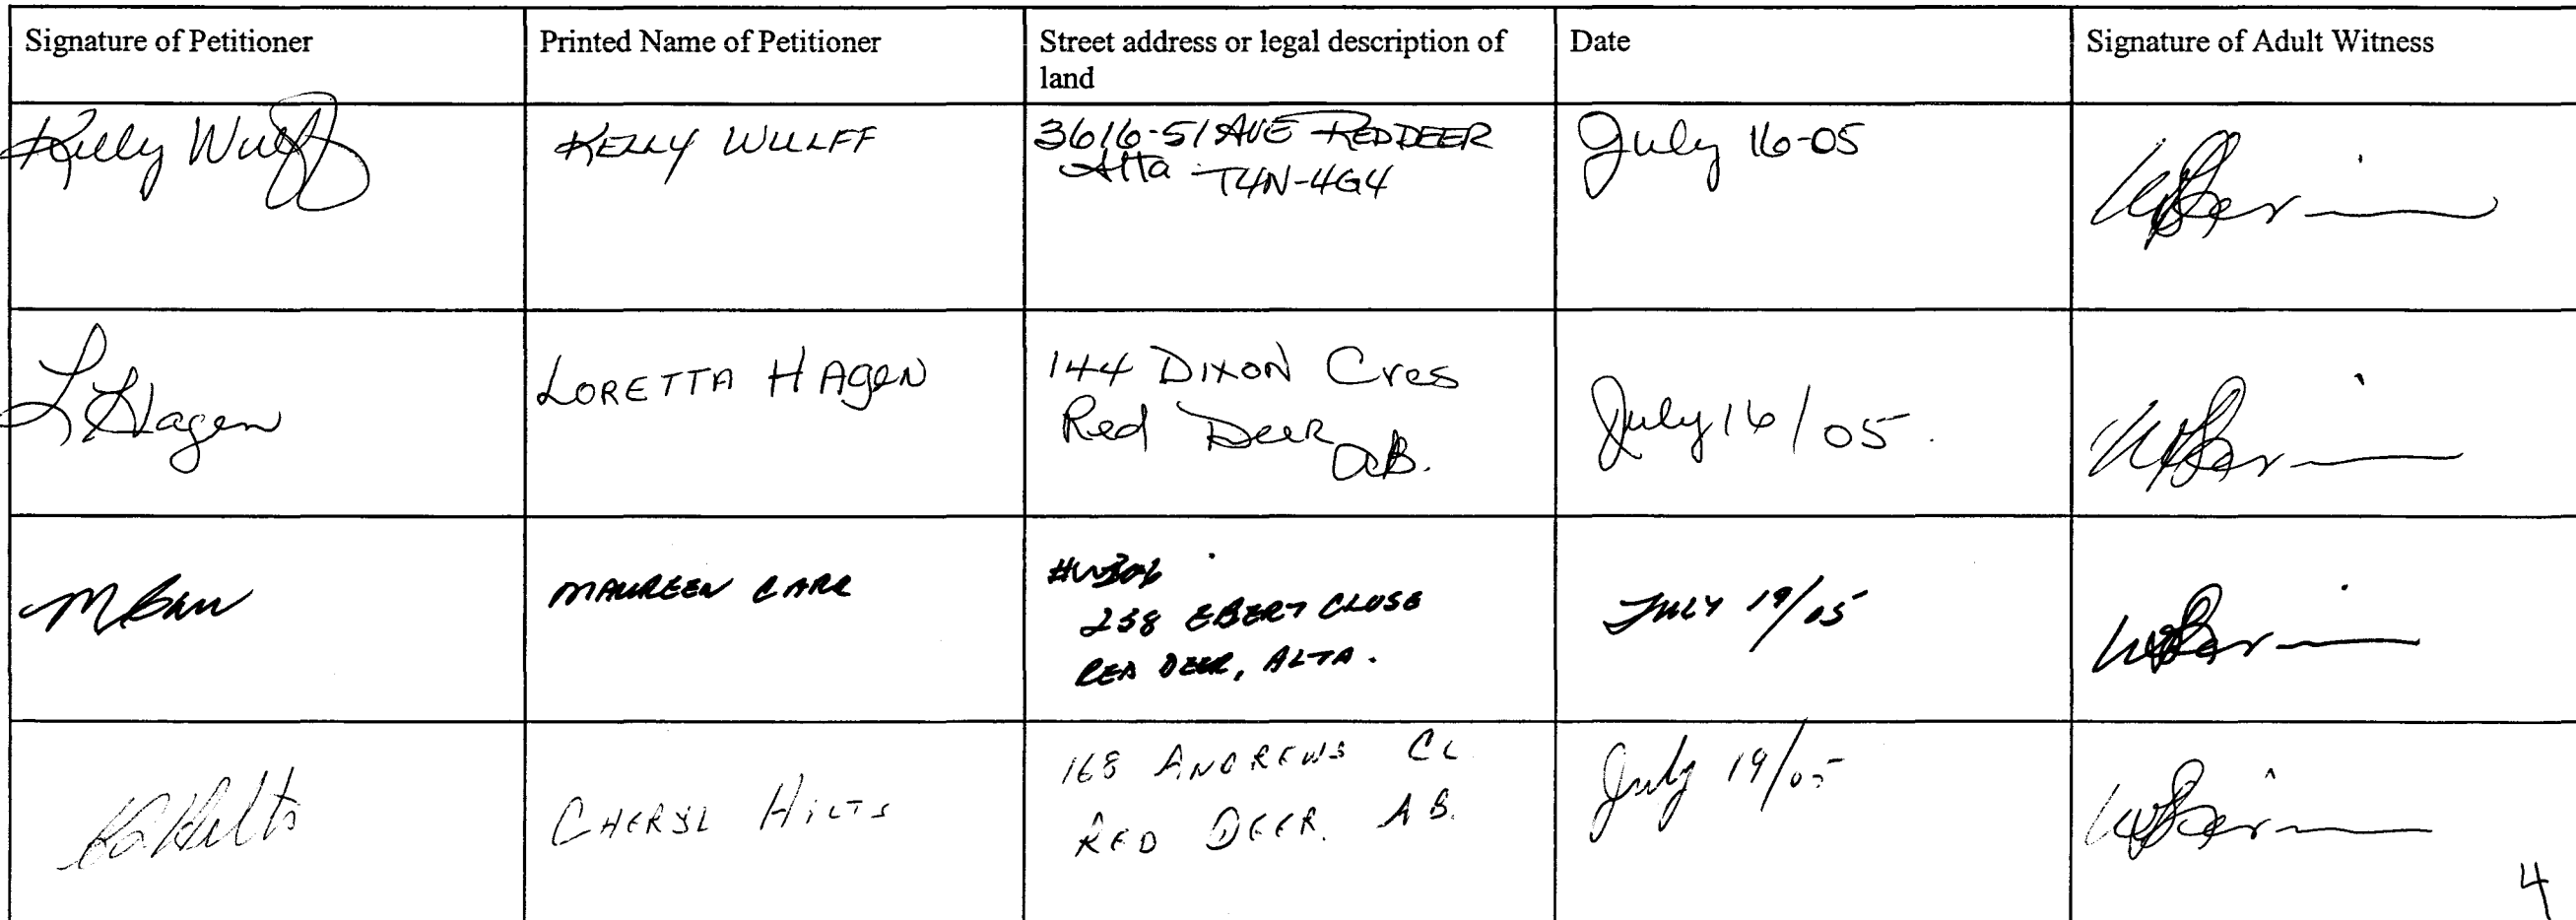 Signature of Petitioner
Printed Name of Petitioner
Street address or legal description of
land
Date
Signature of Adult Witness
Kelly Wulff
KELLY WULFF
3616-51 AVE RED DEER
Alta T4N-4G4
July 16-05
L Hagen
LORETTA HAgeN
144 DIXON Cres
Red Deer
AB.
July 16/05.
M Carr
MAUREEN CARR
238 EBERT CLOSE
RED DEER, ALTA.
JULY 19/05
Hilts
CHERYL HILTS
168 ANDREWS CL
RED DEER. AB.
July 19/05
4